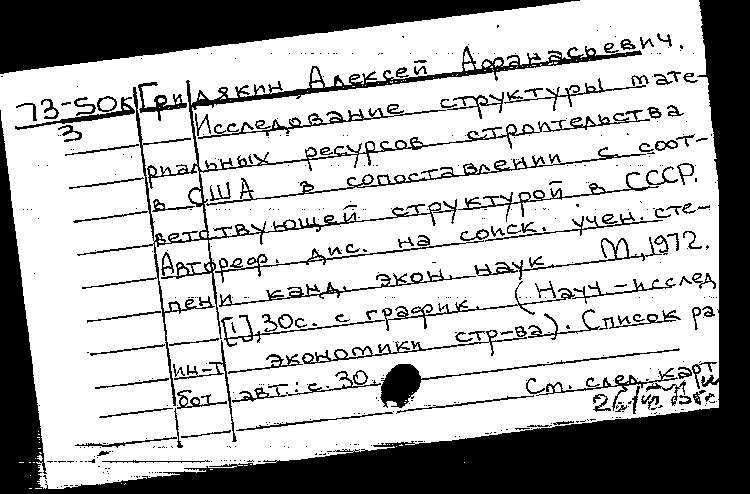 73-50к Грилякин, Алексей Афанасьевич.
3
Исследование структуры мате-
риальных ресурсов строительства
в США в сопоставлении с соот-
ветствующей структурой в СССР.
Автореф. дис. на соиск. учен. сте-
пени канд. экон. наук. М., 1972.
[1], 30с. с график. (Науч-исслед
ин-т экономики стр-ва). Список ра
бот авт.: с. 30.
См. след. карт